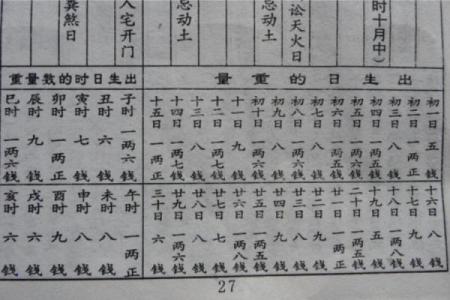 时十月中)
讼天火日
忌动土
忌动土
入宅开门
粪煞日
出生日的重量
初一日 五錢
初二日 一两正
初三日 八錢
初四日 一两五錢
初五日 一两六錢
初六日 一两五錢
初七日 八錢
初八日 一两六錢
初九日 八錢
初十日 一两六錢
十一日 九錢
十二日 一两七錢
十三日 八錢
十四日 一两七錢
十五日 一两正
十六日 八錢
十七日 九錢
十八日 一两八錢
十九日 五錢
二十日 一两五錢
廿一日 一两正
廿二日 九錢
廿三日 八錢
廿四日 九錢
廿五日 一两五錢
廿六日 一两八錢
廿七日 七錢
廿八日 八錢
廿九日 一两六錢
三十日 六錢
出生日时的数量重
子时 一两六錢
丑时 六錢
寅时 七錢
卯时 一两正
辰时 九錢
巳时 一两六錢
午时 一两正
未时 八錢
申时 八錢
酉时 九錢
戌时 六錢
亥时 六錢
27